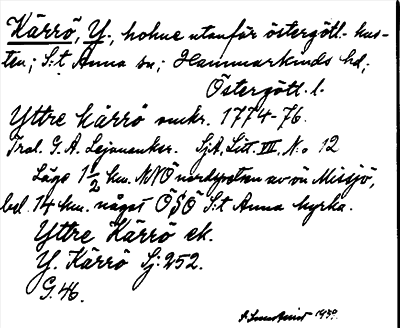 Kärrö, Y., holme utanför östergötl. kus-
ten; S:t Anna sn; Hammarkinds hd;
Östergötl. l.
Yttre Kärrö omkr. 1774-76.
Trol. G. A. Lejonanker. SjA, Litt. VII, N:o 12
Läge 1 1/2 km. NNÖ nordspetsen av ön Missjö,
bel. 14 km. något ÖSÖ S:t Anna kyrka.
Yttre Kärrö ek.
Y. Kärrö Sj: 252.
G. 46.
1939.